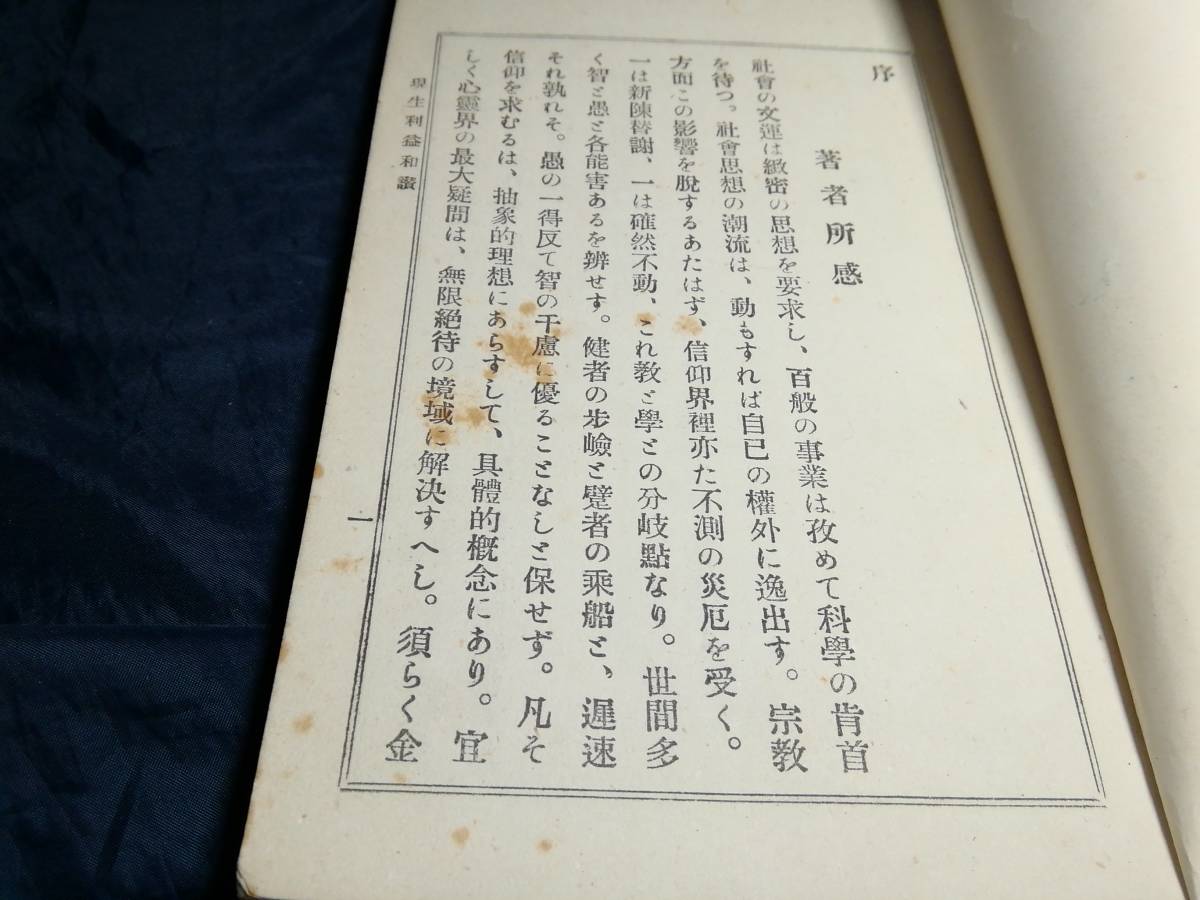 序
著者所感
社會の文運は緻密の思想を要求し、百般の事業は孜めて科學の肯首
を待つ。社會思想の潮流は、動もすれば自已の權外に逸出す。宗教
方面この影響を脫するあたはず、信仰界裡亦た不測の災厄を受く。
一は新陳替謝、一は確然不動、これ教と學との分岐點なり。世間多
く智と愚と各能害あるを辨せす。健者の步嶮と躄者の乘船と、遲速
それ孰れそ。愚の一得反て智の千慮に優ることなしと保せず。凡そ
信仰を求むるは、抽象的理想にあらすして、具體的概念にあり。宜
しく心靈界の最大疑問は、無限絕待の境域に解決すへし。須らく金
現生利益和讃
一